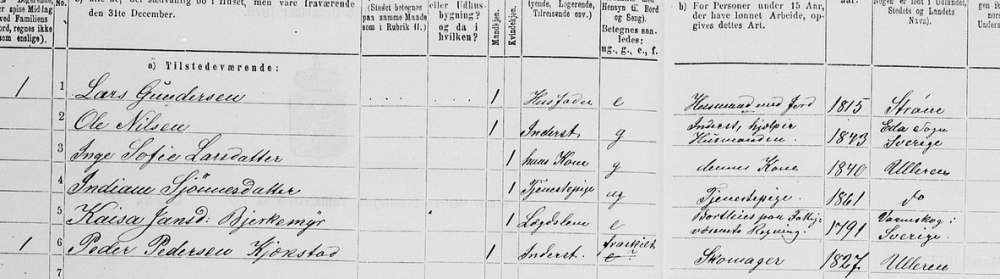 spise Middag
ved Familiens
ord, regnes ikke
som enslige).
den 31te December.
(Stedet betegnes
paa samme Maade
som i Rubrik 11.)
eller Udhus-
bygning?
og da i
hvilken?
Mandkjøn.
Kvindekjøn.
tyende, Logerende,
Tilreisende osv.)
Hensyn til Bord
og Seng).
Betegnes saa-
ledes:
ug., g., e., f.
b) For Personer under 15 Aar,
der have lønnet Arbeide, op-
gives dettes Art.
Stedets og Landets
Navn).
a) Tilstedeværende:
1 1 Lars Gundersen 1 Husfader e Husmand med Jord 1815 Strøm
2 Ole Nilsen 1 Inderst. g Inderst, hjælper Husmanden. 1843 Eda Sogn Sverige
3 Inge Sofie Larsdatter 1 hans Kone g dennes Kone 1840 Ulleren
4 Indiane Sjönnesdatter 1 Tjenestepige ug Tjenestepige. 1861 do
5 Kaisa Jansd: Bjerkemyr 1 Lægdslem e Bortleies paa Fattigvæsenets Regning. 1791 Varmskog: Sverige.
1 6 Peder Pedersen Kjøkstad 1 Inderst. fraskilt e Skomager 1827 Ulleren
7